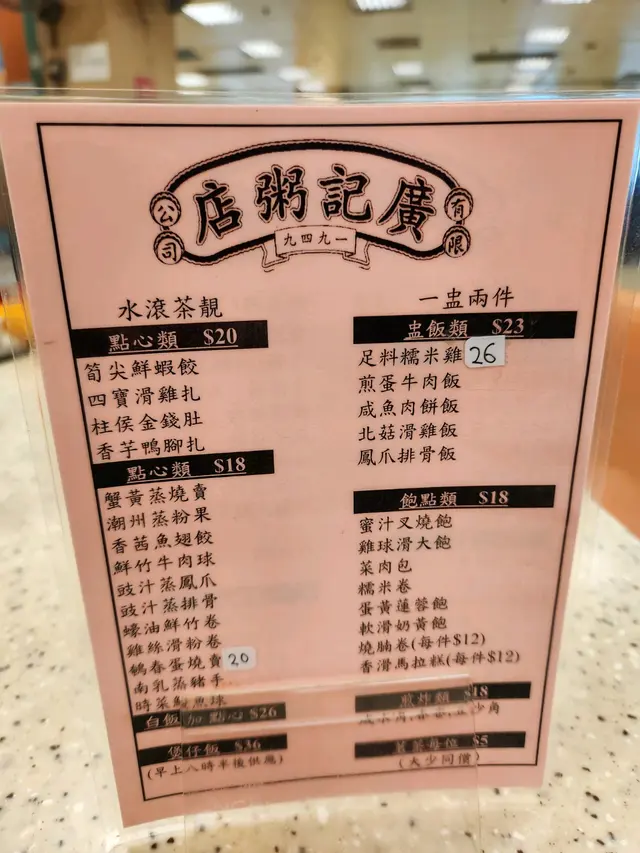 廣記粥店
有限
公司
一九四九
水滾茶靚
點心類 $20
筍尖鮮蝦餃
四寶滑雞扎
柱侯金錢肚
香芋鴨腳扎
點心類 $18
蟹黃蒸燒賣
潮州蒸粉果
香茜魚翅餃
鮮竹牛肉球
豉汁蒸鳳爪
豉汁蒸排骨
蠔油鮮竹卷
雞絲滑粉卷
鵪春蛋燒賣 20
南乳蒸豬手
時菜鯪魚球
白飯加點心 $26
煲仔飯 $36
(早上八時半後供應)
一盅兩件
盅飯類 $23
足料糯米雞 26
煎蛋牛肉飯
咸魚肉餅飯
北菇滑雞飯
鳳爪排骨飯
飽點類 $18
蜜汁叉燒飽
雞球滑大飽
菜肉包
糯米卷
蛋黃蓮蓉飽
軟滑奶黃飽
燒腩卷(每件$12)
香滑馬拉糕(每件$12)
煎炸類 $18
沙角
茗茶每位 $5
(大少同價)